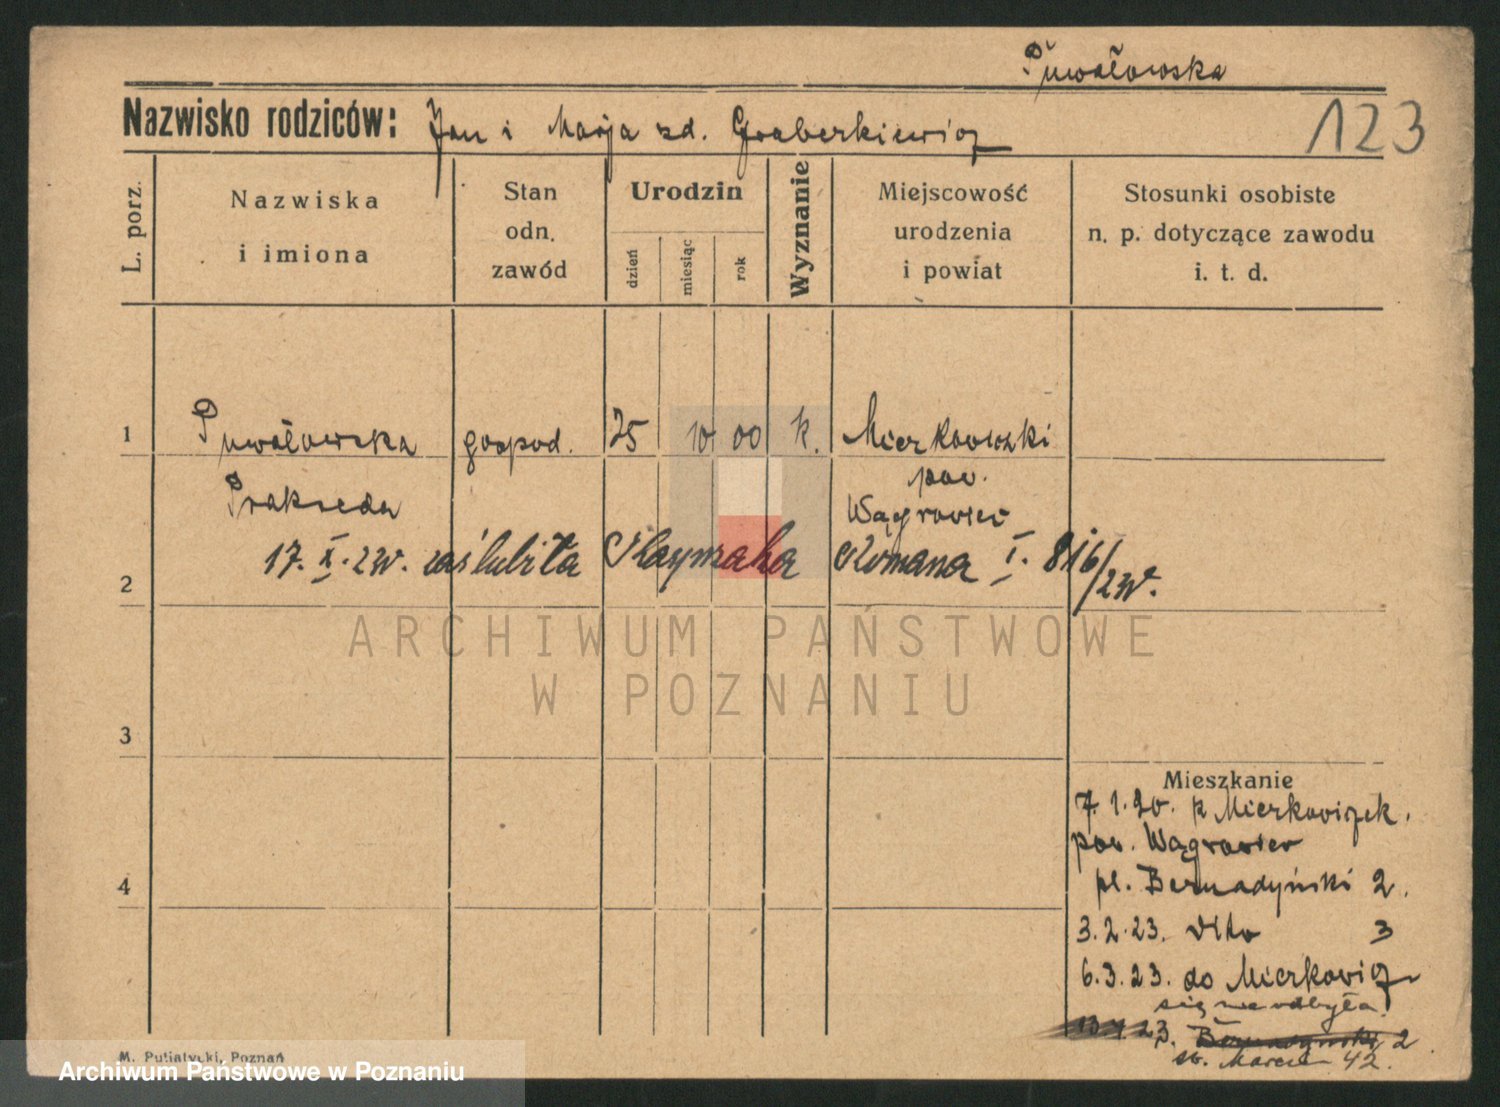 Puwałowska
Nazwisko rodziców: Jan i Marja zd. Graberkiewicz
123
L. porz.
Nazwiska
i imiona
Stan
odn.
zawód
Urodzin
dzień
miesiąc
rok
Wyznanie
Miejscowość
urodzenia
i powiat
Stosunki osobiste
n. p. dotyczące zawodu
i. t. d.
1 Puwałowska gospod. 25 10 00 k.
Prakseda
pow.
Wągrowiec
17. X. 2W. zaślubiła Romana I. 816/2W.
2
ARCHIWUM PAŃSTWOWE
W POZNANIU
3
Mieszkanie
7.1.20. z
pow. Wągrowiec
4
pl. Bernadyński 2.
3.2.23. dito 3
6.3.23. do Mierkowicz
się nie odbyła.
23. Bernadyński 2
św. Marcin 42.
M. Putiatycki, Poznań
Archiwum Państwowe w Poznaniu